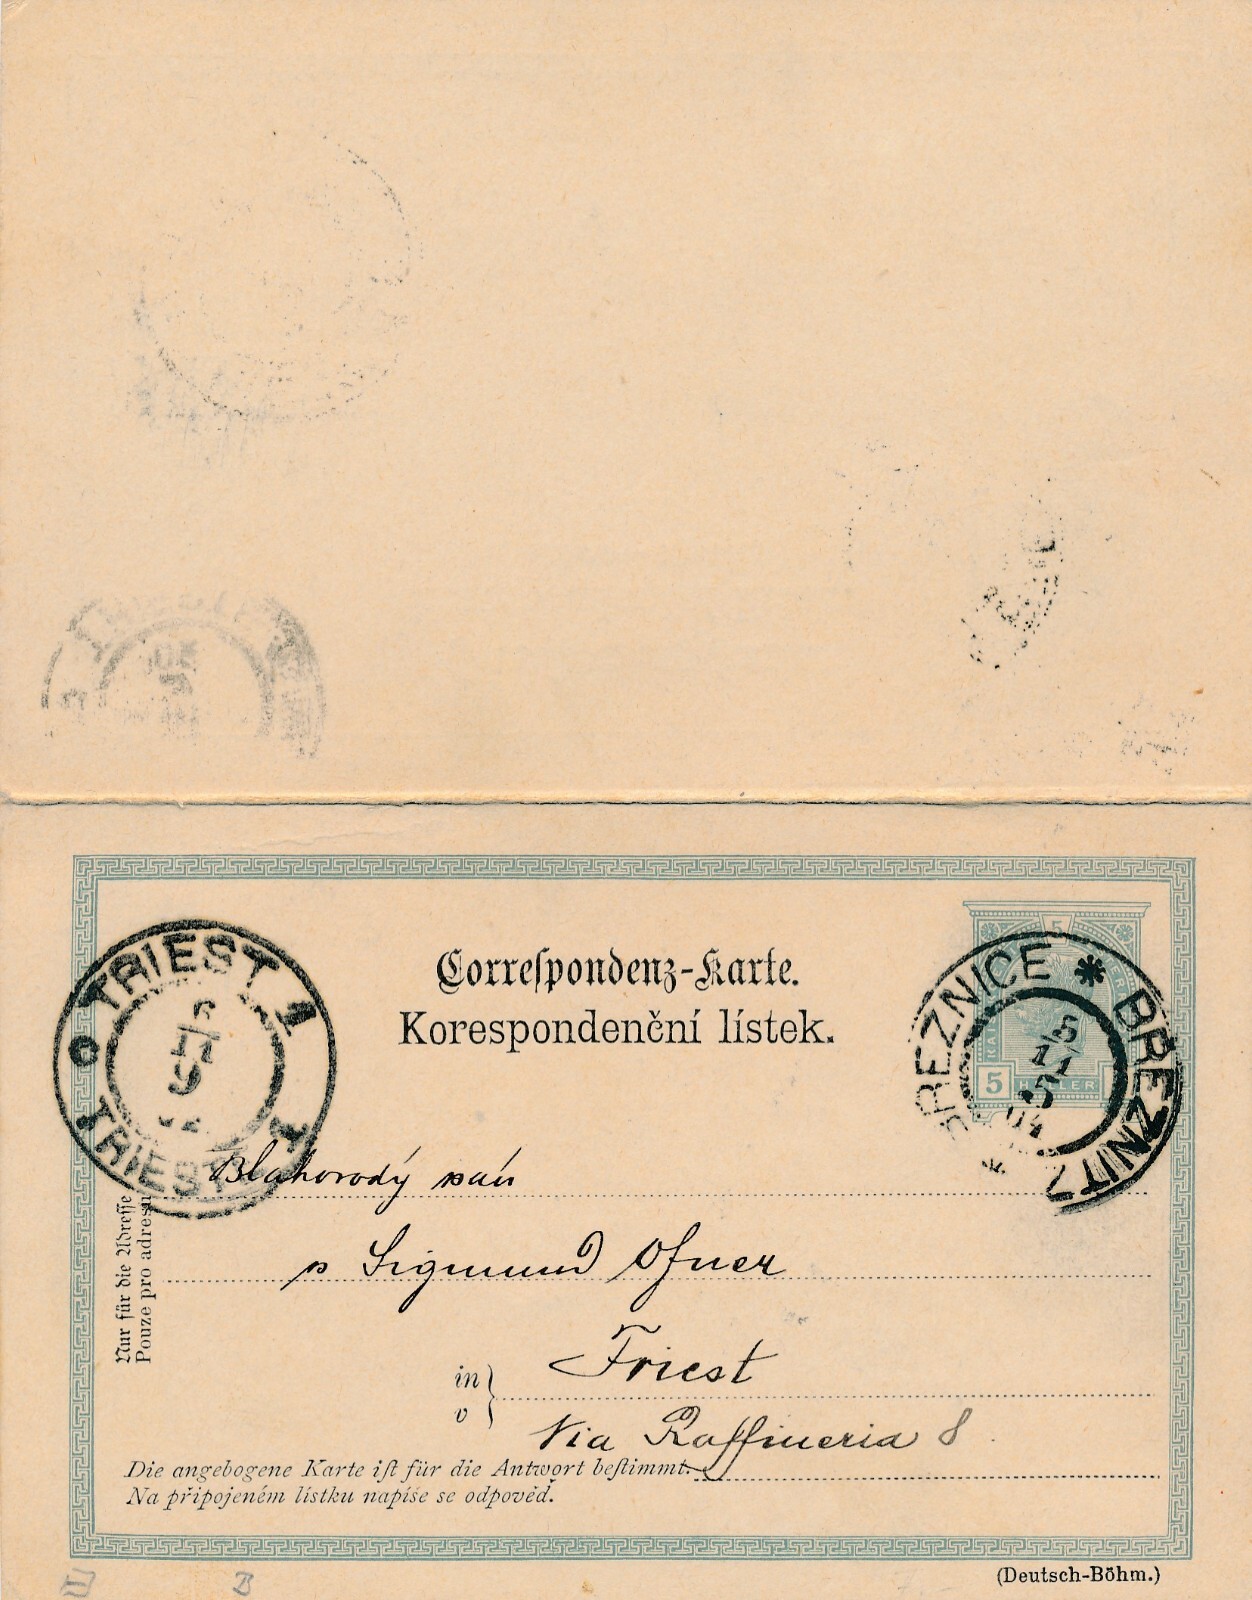 Correſpondenz-Karte.
Korespondenční lístek.
TRIEST 1
TRIEST 1
6
11
9
BŘEZNICE * BŘEZNITZ
5
11
5
04
5
5 HELLER
Blahorodý pán
p Sigmund Ofner
in
v
Triest
Via Raffineria 8
Nur für die Adreſſe
Pouze pro adresu
Die angebogene Karte iſt für die Antwort beſtimmt.
Na připojeném lístku napíše se odpověď.
(Deutsch-Böhm.)
B